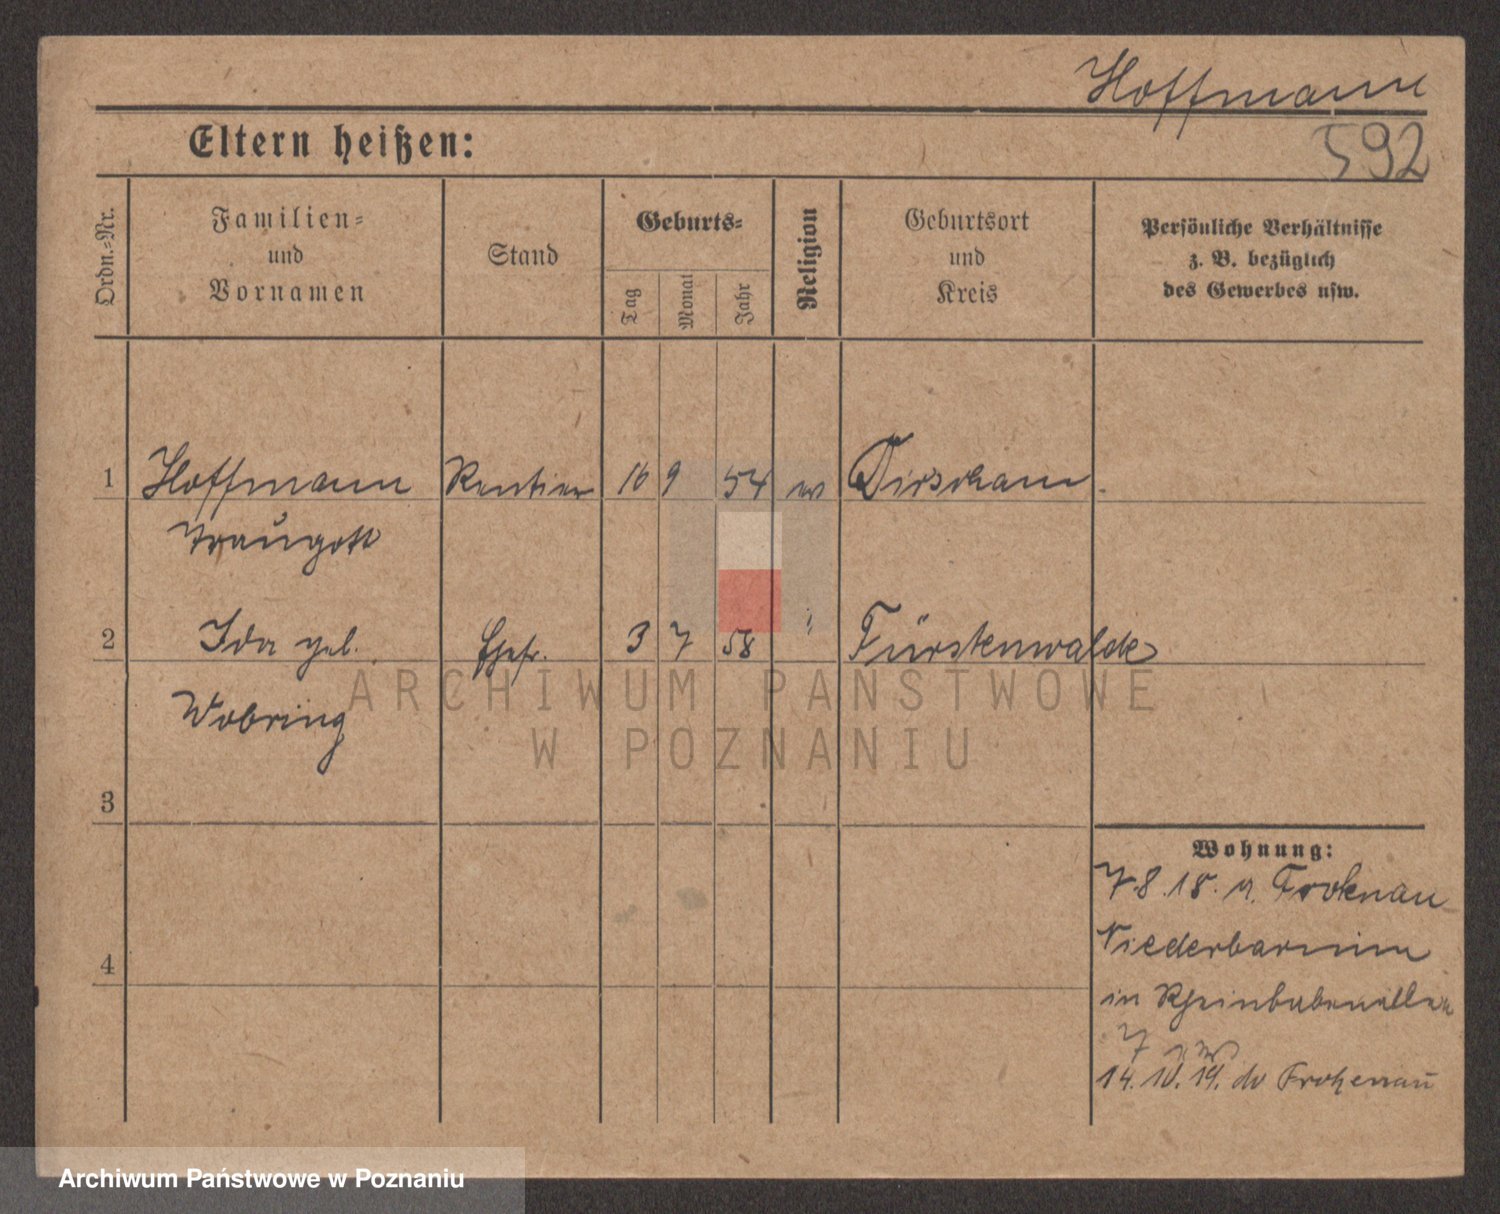 Hoffmann
592
Eltern heißen:
Ordn.-Nr.
Familien-
und
Vornamen
Stand
Geburts-
Tag
Monat
Jahr
Religion
Geburtsort
und
Kreis
Persönliche Verhältnisse
z. B. bezüglich
des Gewerbes usw.
1 Hoffmann Rentier 16 9 54 ev Dirschau
Traugott
2 Ida geb. Ehefr. 3 7 58 " Fürstenwalde
Wobring
3
4
Wohnung:
7.8.18. n. Frohnau
Niederbarnim
in Rheinbabenallee
7
14.10.19. do Frohnau
ARCHIWUM PAŃSTWOWE
W POZNANIU
Archiwum Państwowe w Poznaniu